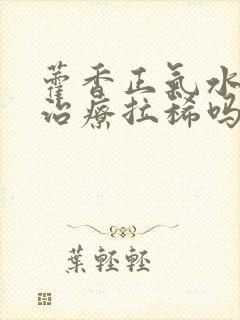 藿香正氣水
治療拉稀吗
葉輕輕